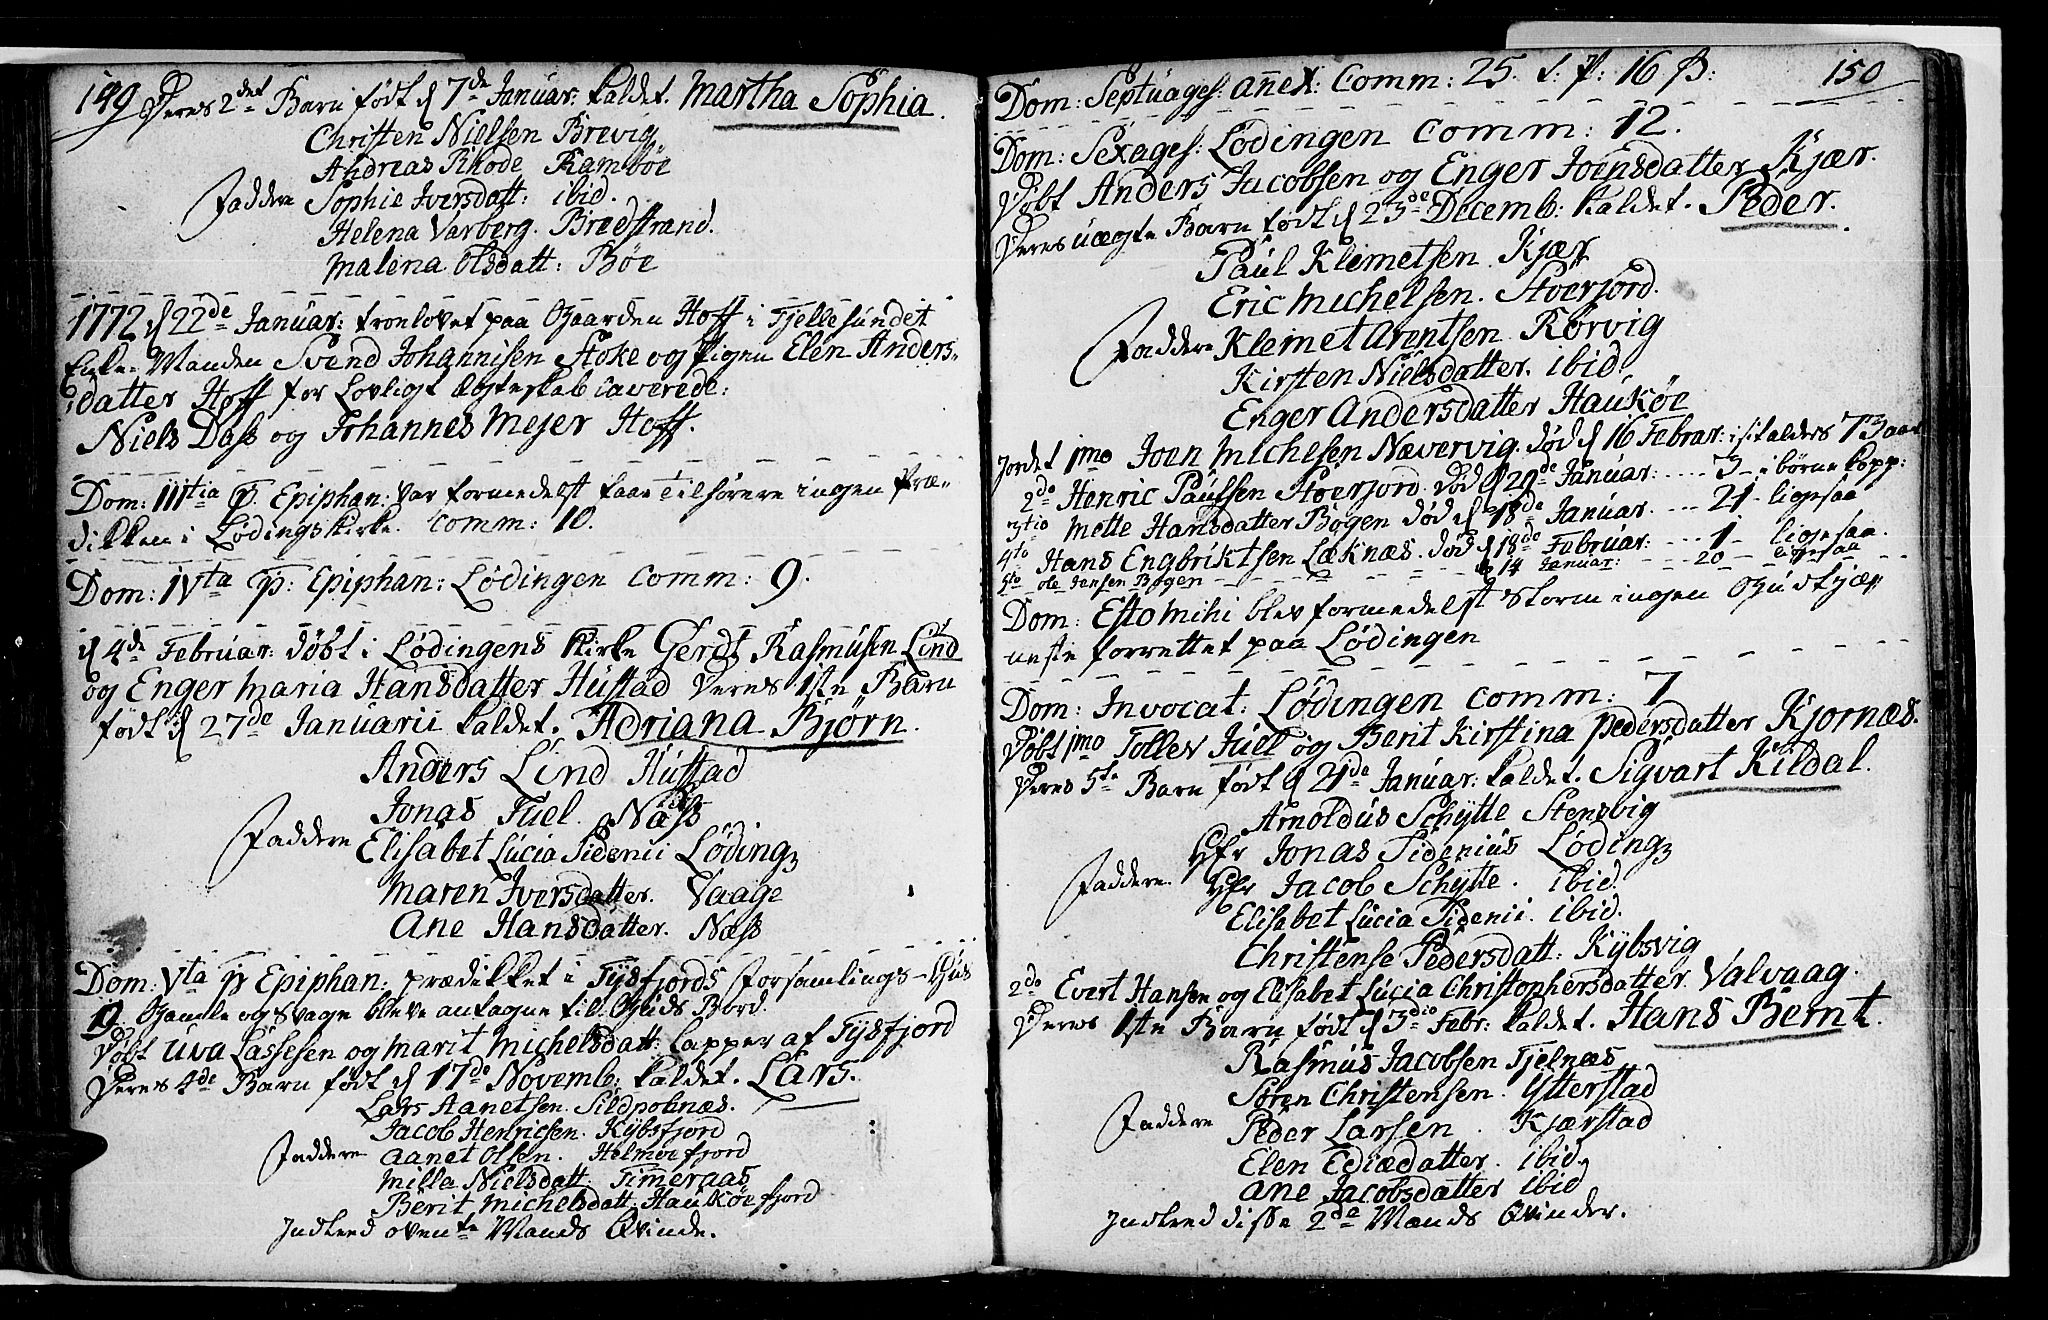 149
Deres 2det Barn født d 7de Januar: kaldet. Martha Sophia.
Christen Nielsen Brevig
Andreas Rhode Rambøe
Faddere Sophie Iversdatt: ibid.
Helena Varberg. Bredstrand.
Malena Olsdatt: Bøe
1772 d 22de Januar: troelovet paa Gaarden Hoff i Tjellesundet
Enke-Manden Svend Johannisen Stoke og Pigen Elen Anders-
datter Hoff for Lovligt Ægteskab caverede:
Niels Dass og Johannes Mejer Hoff.
Dom: IIItia p. Epiphan: var formedelst faae Tilhørere ingen Præ-
dikken i Lødings Kirke. Comm: 10.
Dom: IVta p: Epiphan: Lødingen Comm: 9.
d 4de Februar: døbt i Lødingens Kirke Gerdt Rasmusen Lind
og Enger Maria Hansdatter Hustad deres 1ste Barn
født d 27de Januarii kaldet. Adriana Bjørn.
Anders Lind Hustad
Jonas Juel. Næss
Faddere Elisabet Lucia Sidenii Løding
Maren Iversdatter. Vaage
Ane Hansdatter. Næss
Dom: Vta p Epiphan: prædikket i Tysfjords Forsamlings-Huus
19 Gamle og Svage bleve antagne til Guds Bord.
Døbt Uva Lassesen og Marit Michelsdatt: Lapper af Tysfjord
Deres 4de Barn født d 17de Novemb: kaldet. Lars.
Lars Aanetsen. Sildpolnæs.
Jacob Henricsen. Kybsfjord
Faddere Aanet Olsen. Helmerfjord
Milla Nielsdatt. Timeraas
Berit Michelsdatt. Haukøefjord
Indleed ovente Mands Qvinde.
150
Dom: Septuages: annex: Comm: 25. t. p: 16 ß:
Dom: Sexages: Lødingen Comm: 12.
Døbt Anders Jacobsen og Enger Joensdatter Kjær.
Deres uægte Barn født d 23de Decemb: kaldet. Peder.
Paul Klemetsen. Kjær
Eric Michelsen. Stoerjord.
Faddere Klemet Arentsen. Rørvig
Kirsten Nielsdatter. ibid.
Enger Andersdatter Haukøe
Jordet 1mo Joen Michelsen Nævervig. død d 16 Februar: i sit alders 73 aar
2do Henric Paulsen Stoerjord. død d 29de Januar: .... 3 - i børnekopp:
3tio Mette Hansdatter Bogen død d 18de Januar. .... 21 - ligesaa
4to Hans Engbriktsen Læknæs. død d 18de Februar: .... 1 - ligesaa.
5to Ole Jensen Bogen d 14 Januar: 20 - ligesaa
Dom: Esto Mihi blev formedelst Storm ingen Gudstjæ-
neste forrettet paa Lødingen
Dom: Invocat: Lødingen Comm: 7
Døbt 1mo Tollev Juel og Berit Kirstina Pedersdatter Kjornæs.
Deres 5te Barn født d 21de Januar: kaldet. Sigvart Kildal.
Arnoldus Schytte Stensvig
Hr Jonas Sidenius Løding
Faddere. Hr Jacob Schytte. ibid.
Elisabet Lucia Sidenii. ibid.
Christense Pedersdatt: Kybsvig
2do Evert Hansen og Elisabet Lucia Christophersdatter. Valvaag.
Deres 1ste Barn født d 3dio Febr: kaldet. Hans Bernt.
Rasmus Jacobsen Tjelnæs
Søren Christensen. Ytterstad
Faddere Peder Larsen. Kjærstad
Elen Ediædatter. ibid.
Ane Jacobsdatter ibid
Indleed disse 2de Mænds Qvinder.